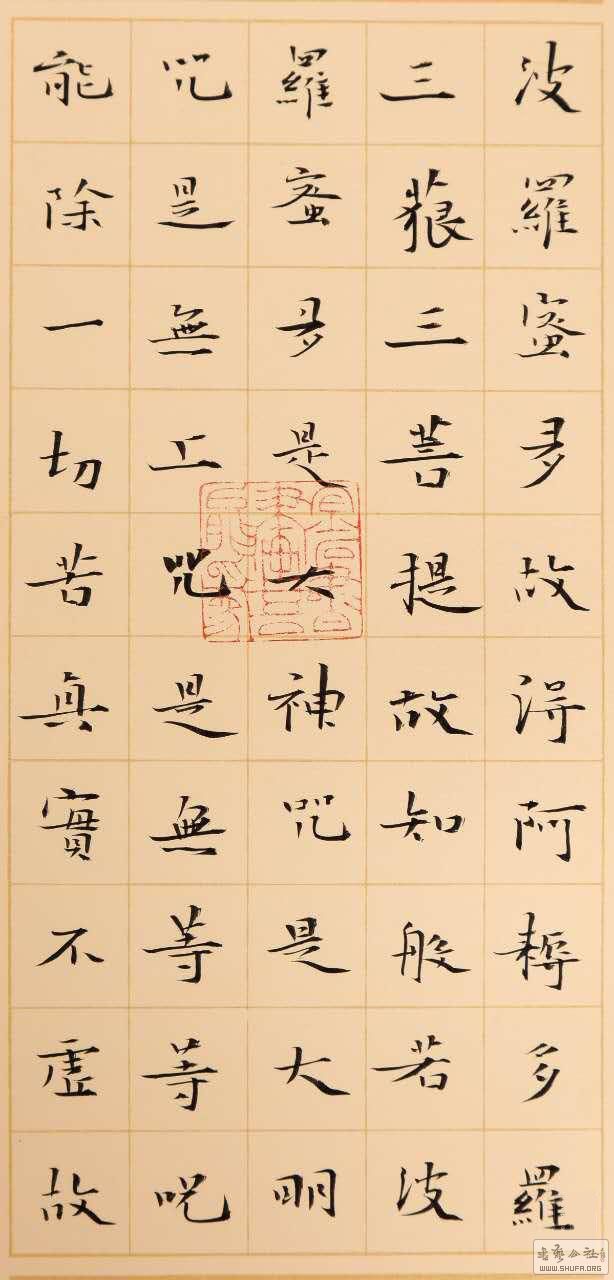 波羅蜜多故得阿耨多羅
三藐三菩提故知般若波
羅蜜多是大神咒是大明
咒是無上咒是無等等呪
能除一切苦真實不虛故
WWW.SHUFA.ORG